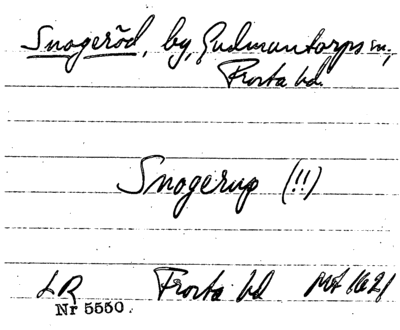 Snogeröd, by, Gudmuntorps sn,
Frosta hd.
Snogerup (!!)
LR Frosta hd Mt 1621
Nr 5550